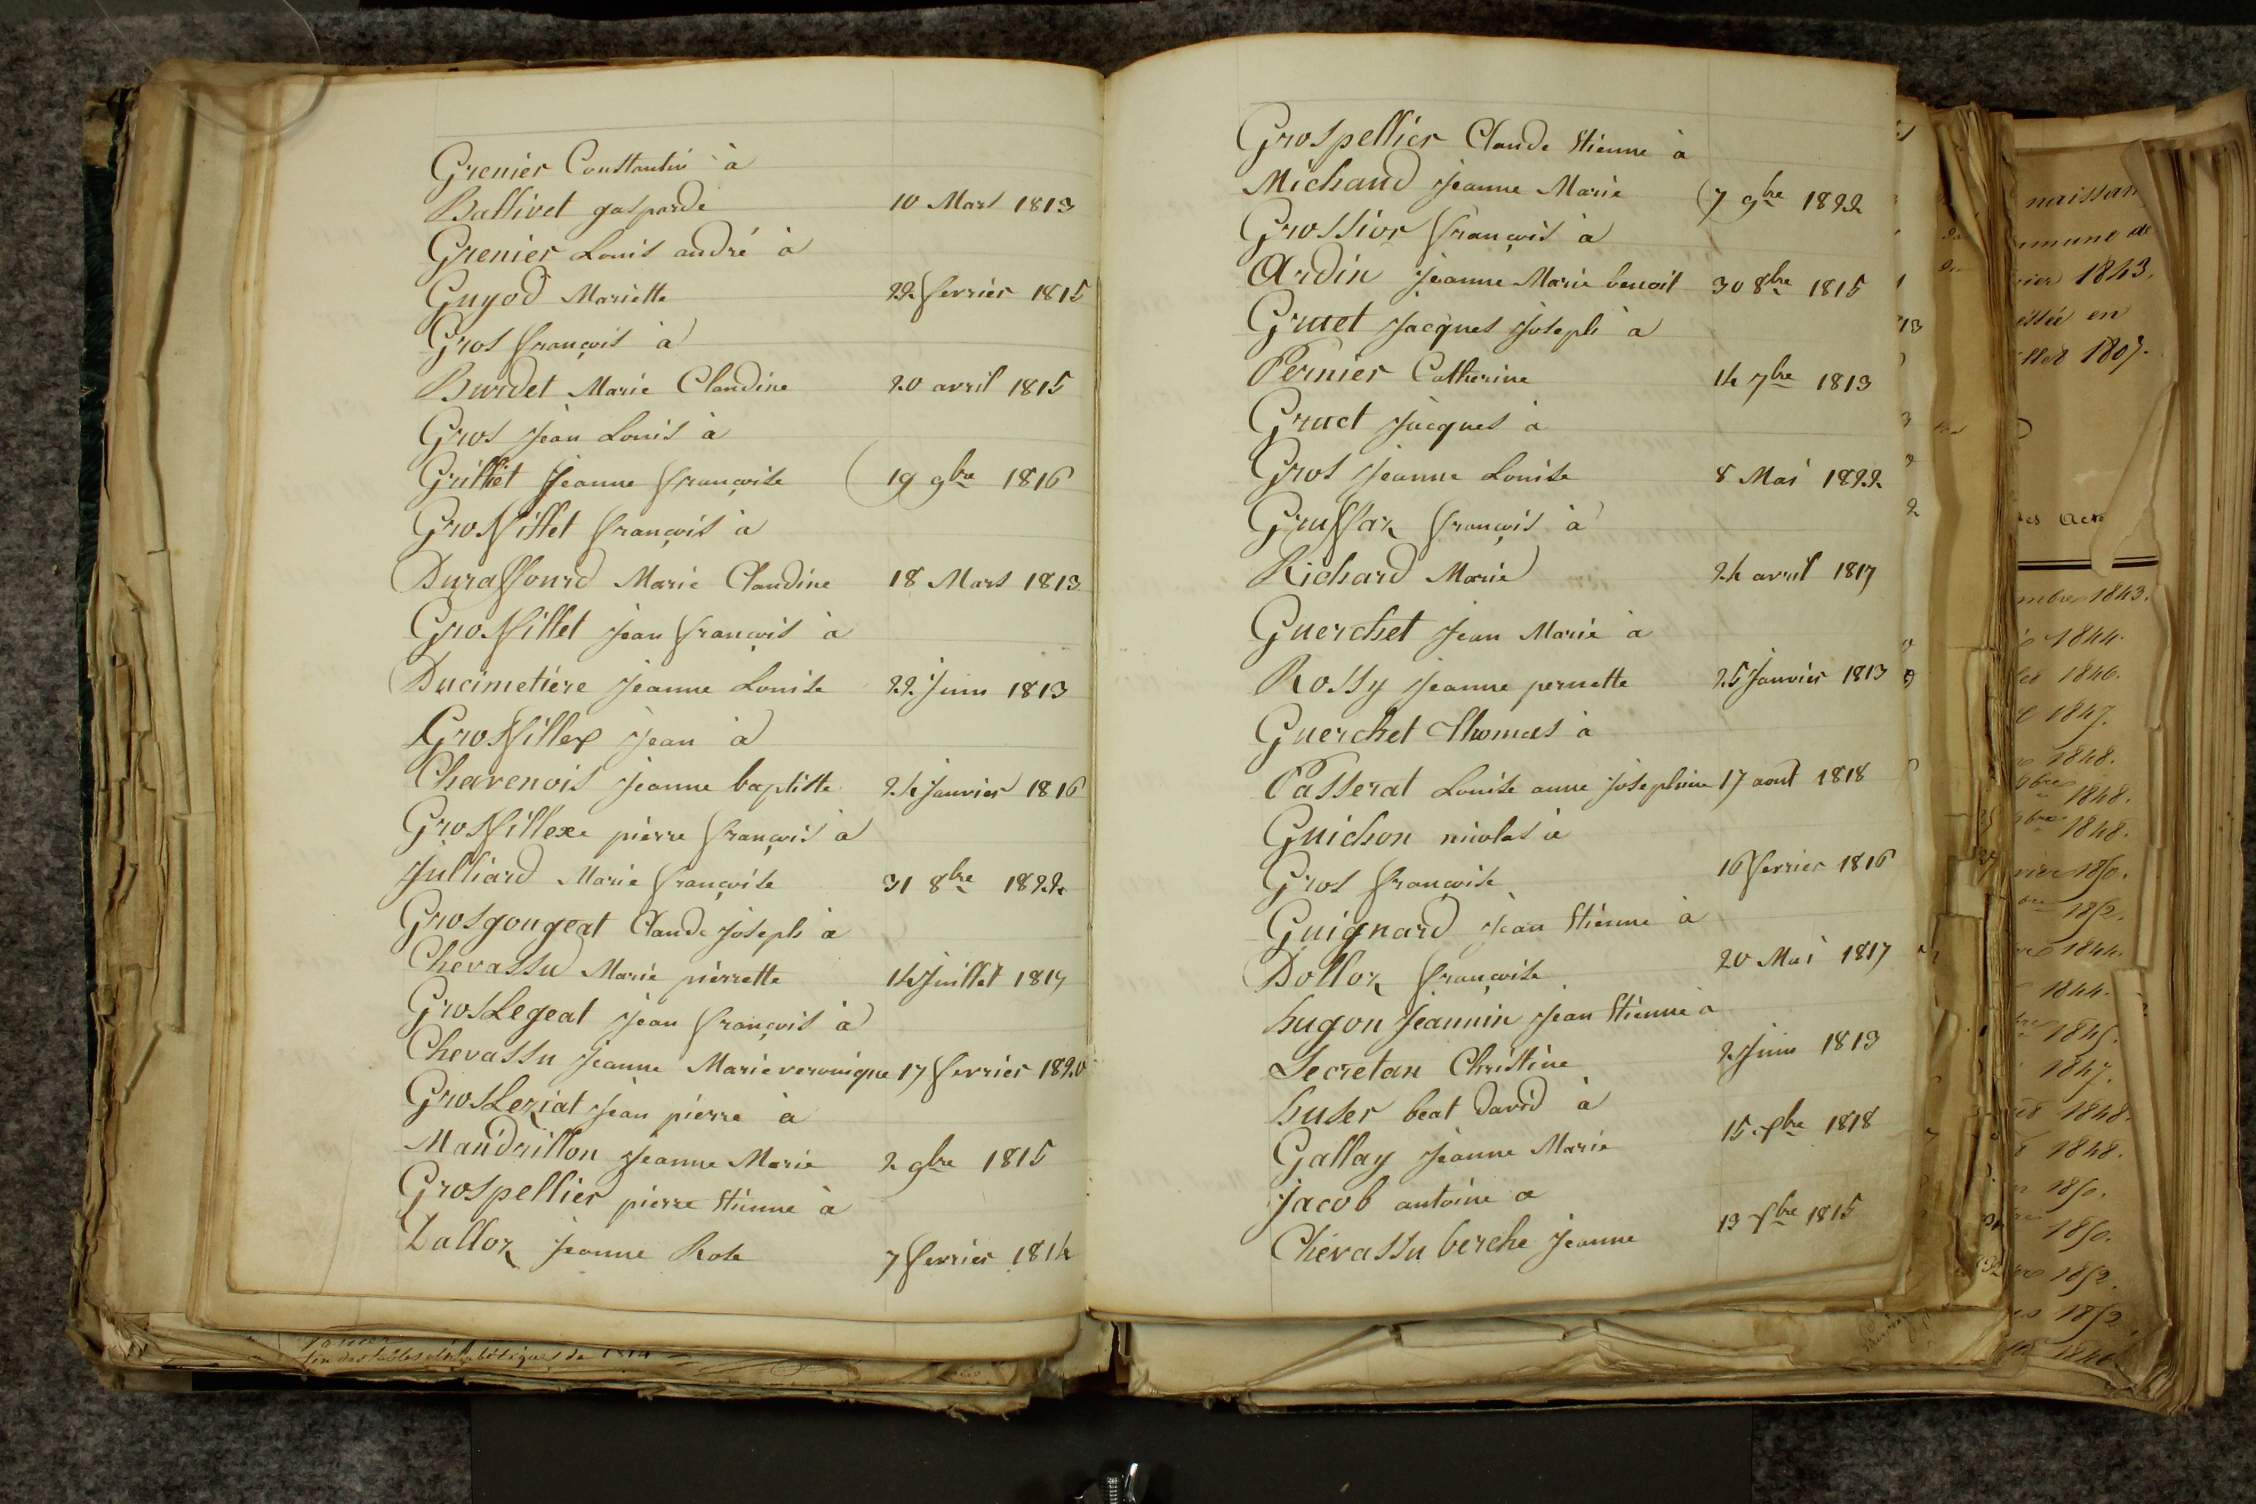 Grenier Constantin à
Ballivet gasparde 10 Mars 1813
Grenier Louis andré à
Guyod Mariette 22 fevrier 1815
Gros françois à
Burdet Marie Claudine 20 avril 1815
Gros jean Louis à
Grilliet Jeanne françoise 19 9bre 1816
Grossillet françois à
Duraffourd Marie Claudine 18 Mars 1813
Grossillet jean françois à
Ducimetiere jeanne Louise 22 Juin 1813
Grossillex jean à
Chavenois jeanne baptiste 24 janvier 1816
Grossillexe pierre françois à
Julliard Marie françoise 31 8bre 1822
Grosgougeat Claude joseph à
Chevassu Marie pierrette 14 Juillet 1817
GrosLegeat jean françois à
Chevassu jeanne Marie veronique 17 fevrier 1820
GrosLeziat jean pierre à
Mandrillon jeanne Marie 2 9bre 1815
Grospellier pierre Etienne à
Dalloz jeanne Rose 7 fevrier 1814
Grospellier Claude Etienne à
Michaud jeanne Marie 7 9bre 1822
Grossior françois à
Ardin jeanne Marie benoit 30 8bre 1815
Gruet jacques joseph à
Pernier Catherine 14 7bre 1813
Gruet jacques à
Gros jeanne Louise 8 Mai 1822
Gruffaz françois à
Richard Marie 24 avril 1817
Guerchet jean Marie à
Rossy jeanne pernette 25 Janvier 1813
Guerchet Thomas à
Passerat Louise anne josephine 17 aout 1818
Guichon nicolas à
Gros françoise 16 fevrier 1816
Guignard jean Etienne à
Dolloz françoise 20 Mai 1817
hugon Jeannin jean Etienne à
Secretan Christine 2 Juin 1813
huser beat david à
Gallay jeanne Marie 15 xbre 1818
jacob antoine a
Chevassu berche jeanne 13 xbre 1815
naissan
1843.
en
1807.
1843.
1844.
1846.
1847.
1848.
1848.
1848.
1850.
1852.
1844.
1844.
1845.
1847.
1848.
1848.
1850.
1850.
1852.
1852